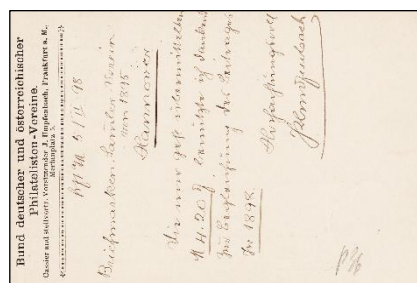 Bund deutscher und österreichischer
Philatelisten-Vereine.
Cassier und stellvertr. Vorsitzender J. Umpfenbach, Frankfurt a. M.,
Merianplatz
98
Briefmarken Samler Verein
von 1895
Hannover
Die mir gefl übermittelten
M 4.20 ich dankend
zur Begleichung des Beitrages
1898.
Hochachtungsvoll